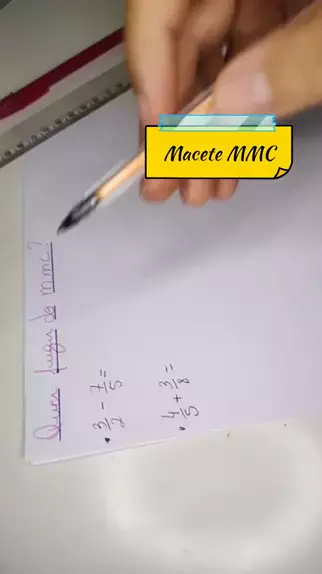 Macete MMC
Quer fugir do mmc?
• 3/2 - 7/5 =
• 4/5 + 3/8 =